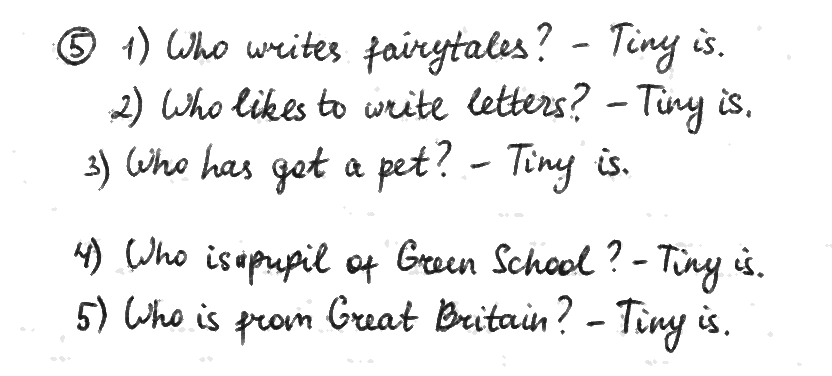 ⑤ 1) Who writes fairytales? - Tiny is.
2) Who likes to write letters? - Tiny is.
3) Who has got a pet? - Tiny is.
4) Who is a pupil of Green School? - Tiny is.
5) Who is from Great Britain? - Tiny is.